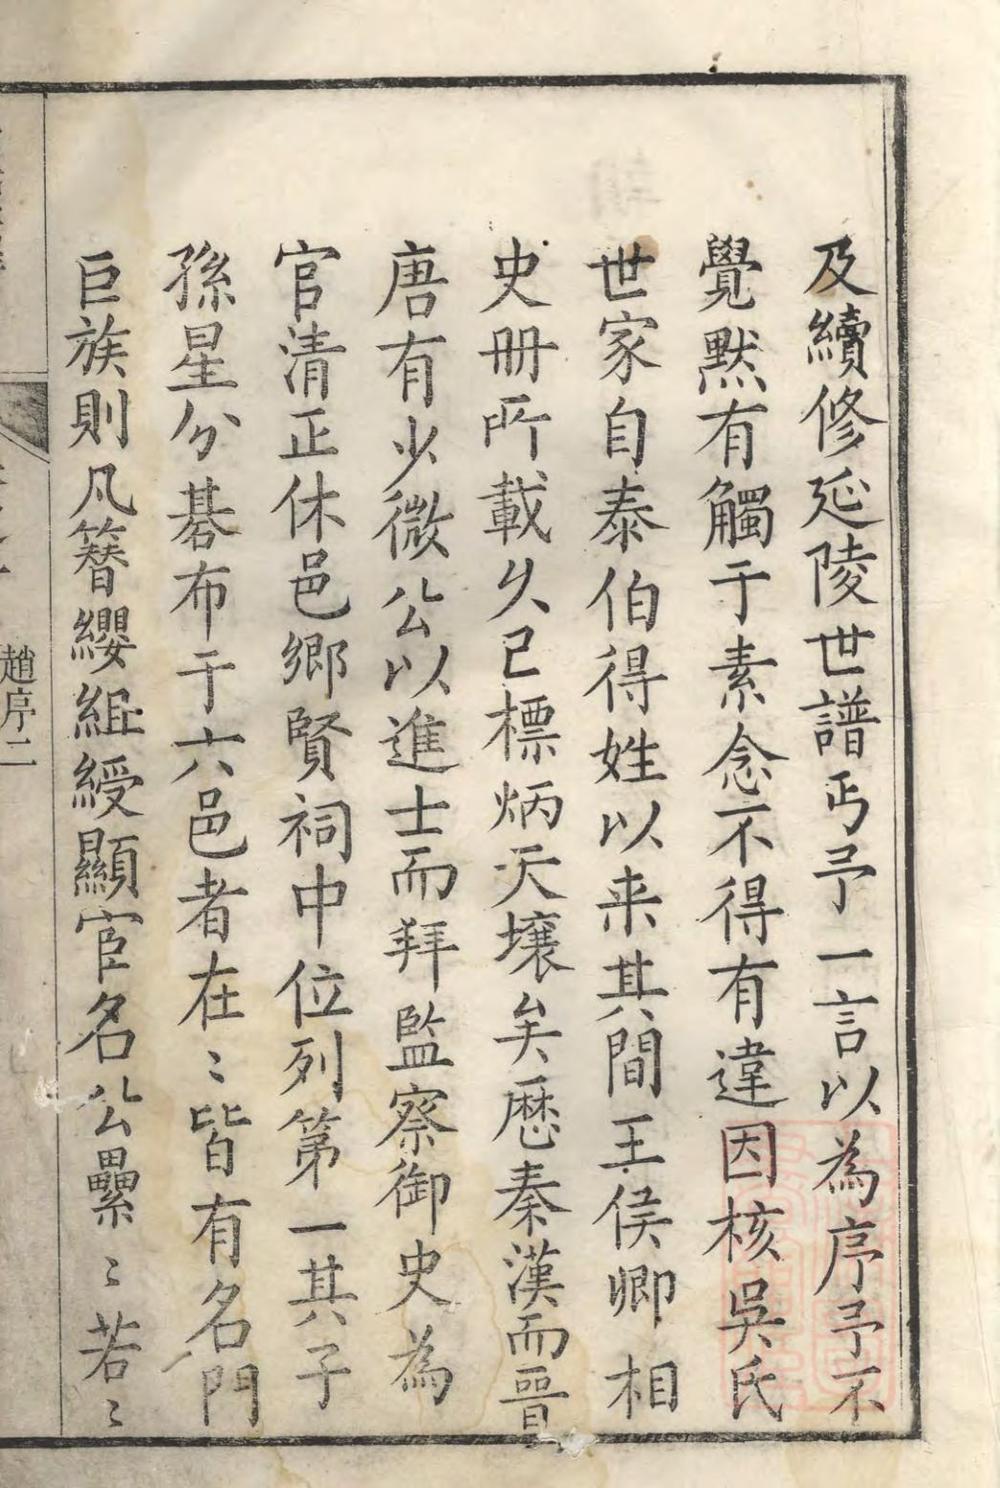 及續修延陵世譜丐予一言以為序予不
覺默有觸于素念不得有違因核吳氏
世家自泰伯得姓以来其間王侯卿相
史册所載久已標炳天壤矣歷秦漢而晉
唐有少微公以進士而拜監察御史為
官清正休邑鄉賢祠中位列第一其子
孫星分碁布于六邑者在〻皆有名門
巨族則凡簪纓組綬顯宦名公纍〻若〻
趙序二